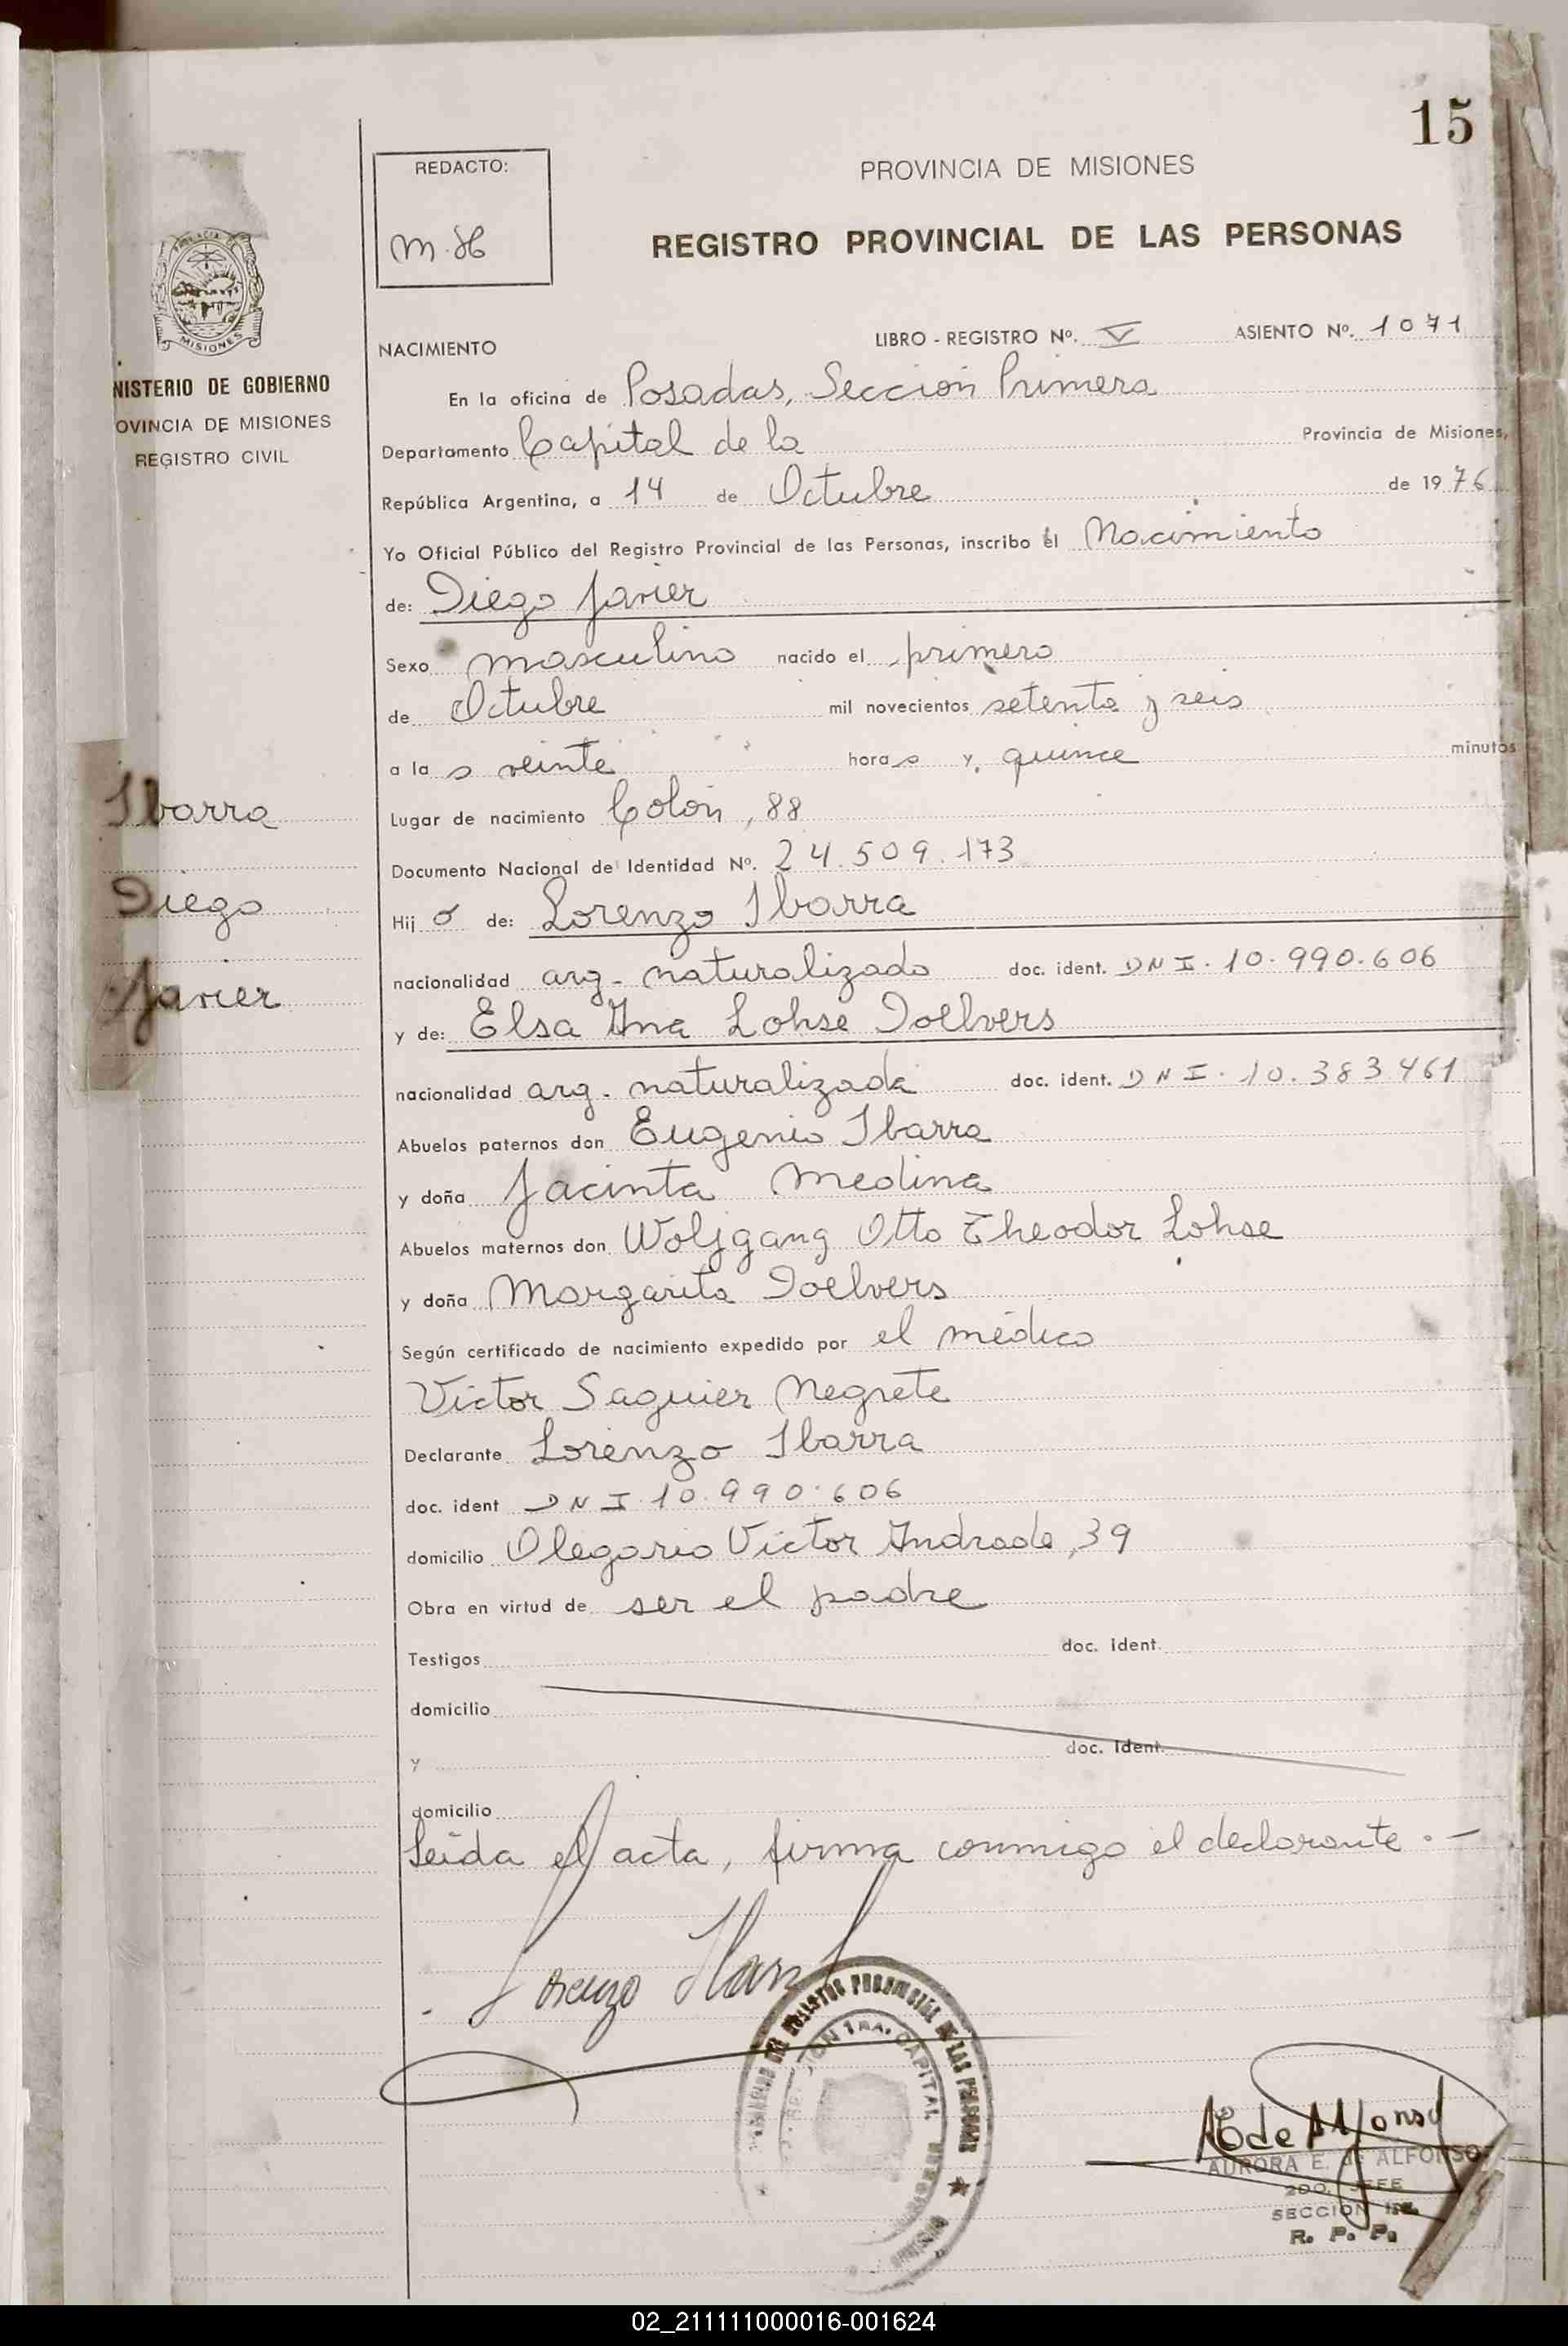 15
REDACTO:
M.H
PROVINCIA DE MISIONES
REGISTRO PROVINCIAL DE LAS PERSONAS
MISIONES
NISTERIO DE GOBIERNO
OVINCIA DE MISIONES
REGISTRO CIVIL
NACIMIENTO LIBRO - REGISTRO Nº. V ASIENTO Nº. 1071
En la oficina de Posadas, Sección Primera
Departamento Capital de la Provincia de Misiones,
República Argentina, a 14 de Octubre de 1976
Yo Oficial Público del Registro Provincial de las Personas, inscribo el Nacimiento
de: Diego Javier
Sexo masculino nacido el primero
de Octubre mil novecientos setenta y seis
a las veinte horas y quince minutos
Ibarra
Diego
Javier
Lugar de nacimiento Colón, 88
Documento Nacional de Identidad Nº. 24.509.173
Hijo de: Lorenzo Ibarra
nacionalidad arg. naturalizado doc. ident. DNI. 10.990.606
y de: Elsa Ana Lohse Doellvers
nacionalidad arg. naturalizada doc. ident. DNI. 10.383461
Abuelos paternos don Eugenio Ibarra
y doña Jacinta Medina
Abuelos maternos don Wolfgang Otto Theodor Lohse
y doña Margarita Doelvers
Según certificado de nacimiento expedido por el médico
Victor Saguier Negrete
Declarante Lorenzo Ibarra
doc. ident DNI.10.990.606
domicilio Olegario Victor Andrade, 39
Obra en virtud de ser el padre
Testigos doc. ident.
domicilio
y doc. ident.
domicilio
Leída el acta, firma conmigo el declarante.-
Lorenzo Ibarra
REGISTRO PROVINCIAL DE LAS PERSONAS
1RA. CAPITAL
AEde Alfonso
AURORA E. de ALFONSO
2DO. JEFE
SECCION 1RA.
R. P. P.
02_211111000016-001624